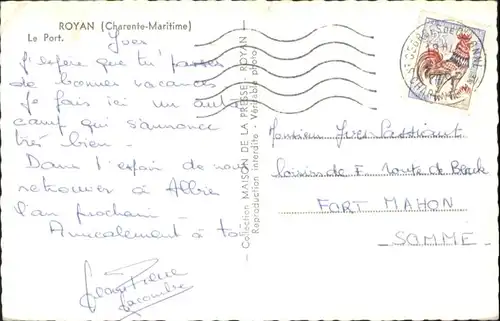 ROYAN (Charente-Maritime)
Le Port.
Yves
J'espère que tu passes
de bonnes vacances
Je fais ici un autre
camp qui s'annonce
très bien -
Dans l'espoir de nous
retrouver à
l'an prochain -
Amicalement à toi
Jean Pierre
Lacombe
Collection MAISON DE LA PRESSE - ROYAN
Reproduction interdite - Véritable photo
Monsieur Yves
de F route de
FORT MAHON
- SOMME -